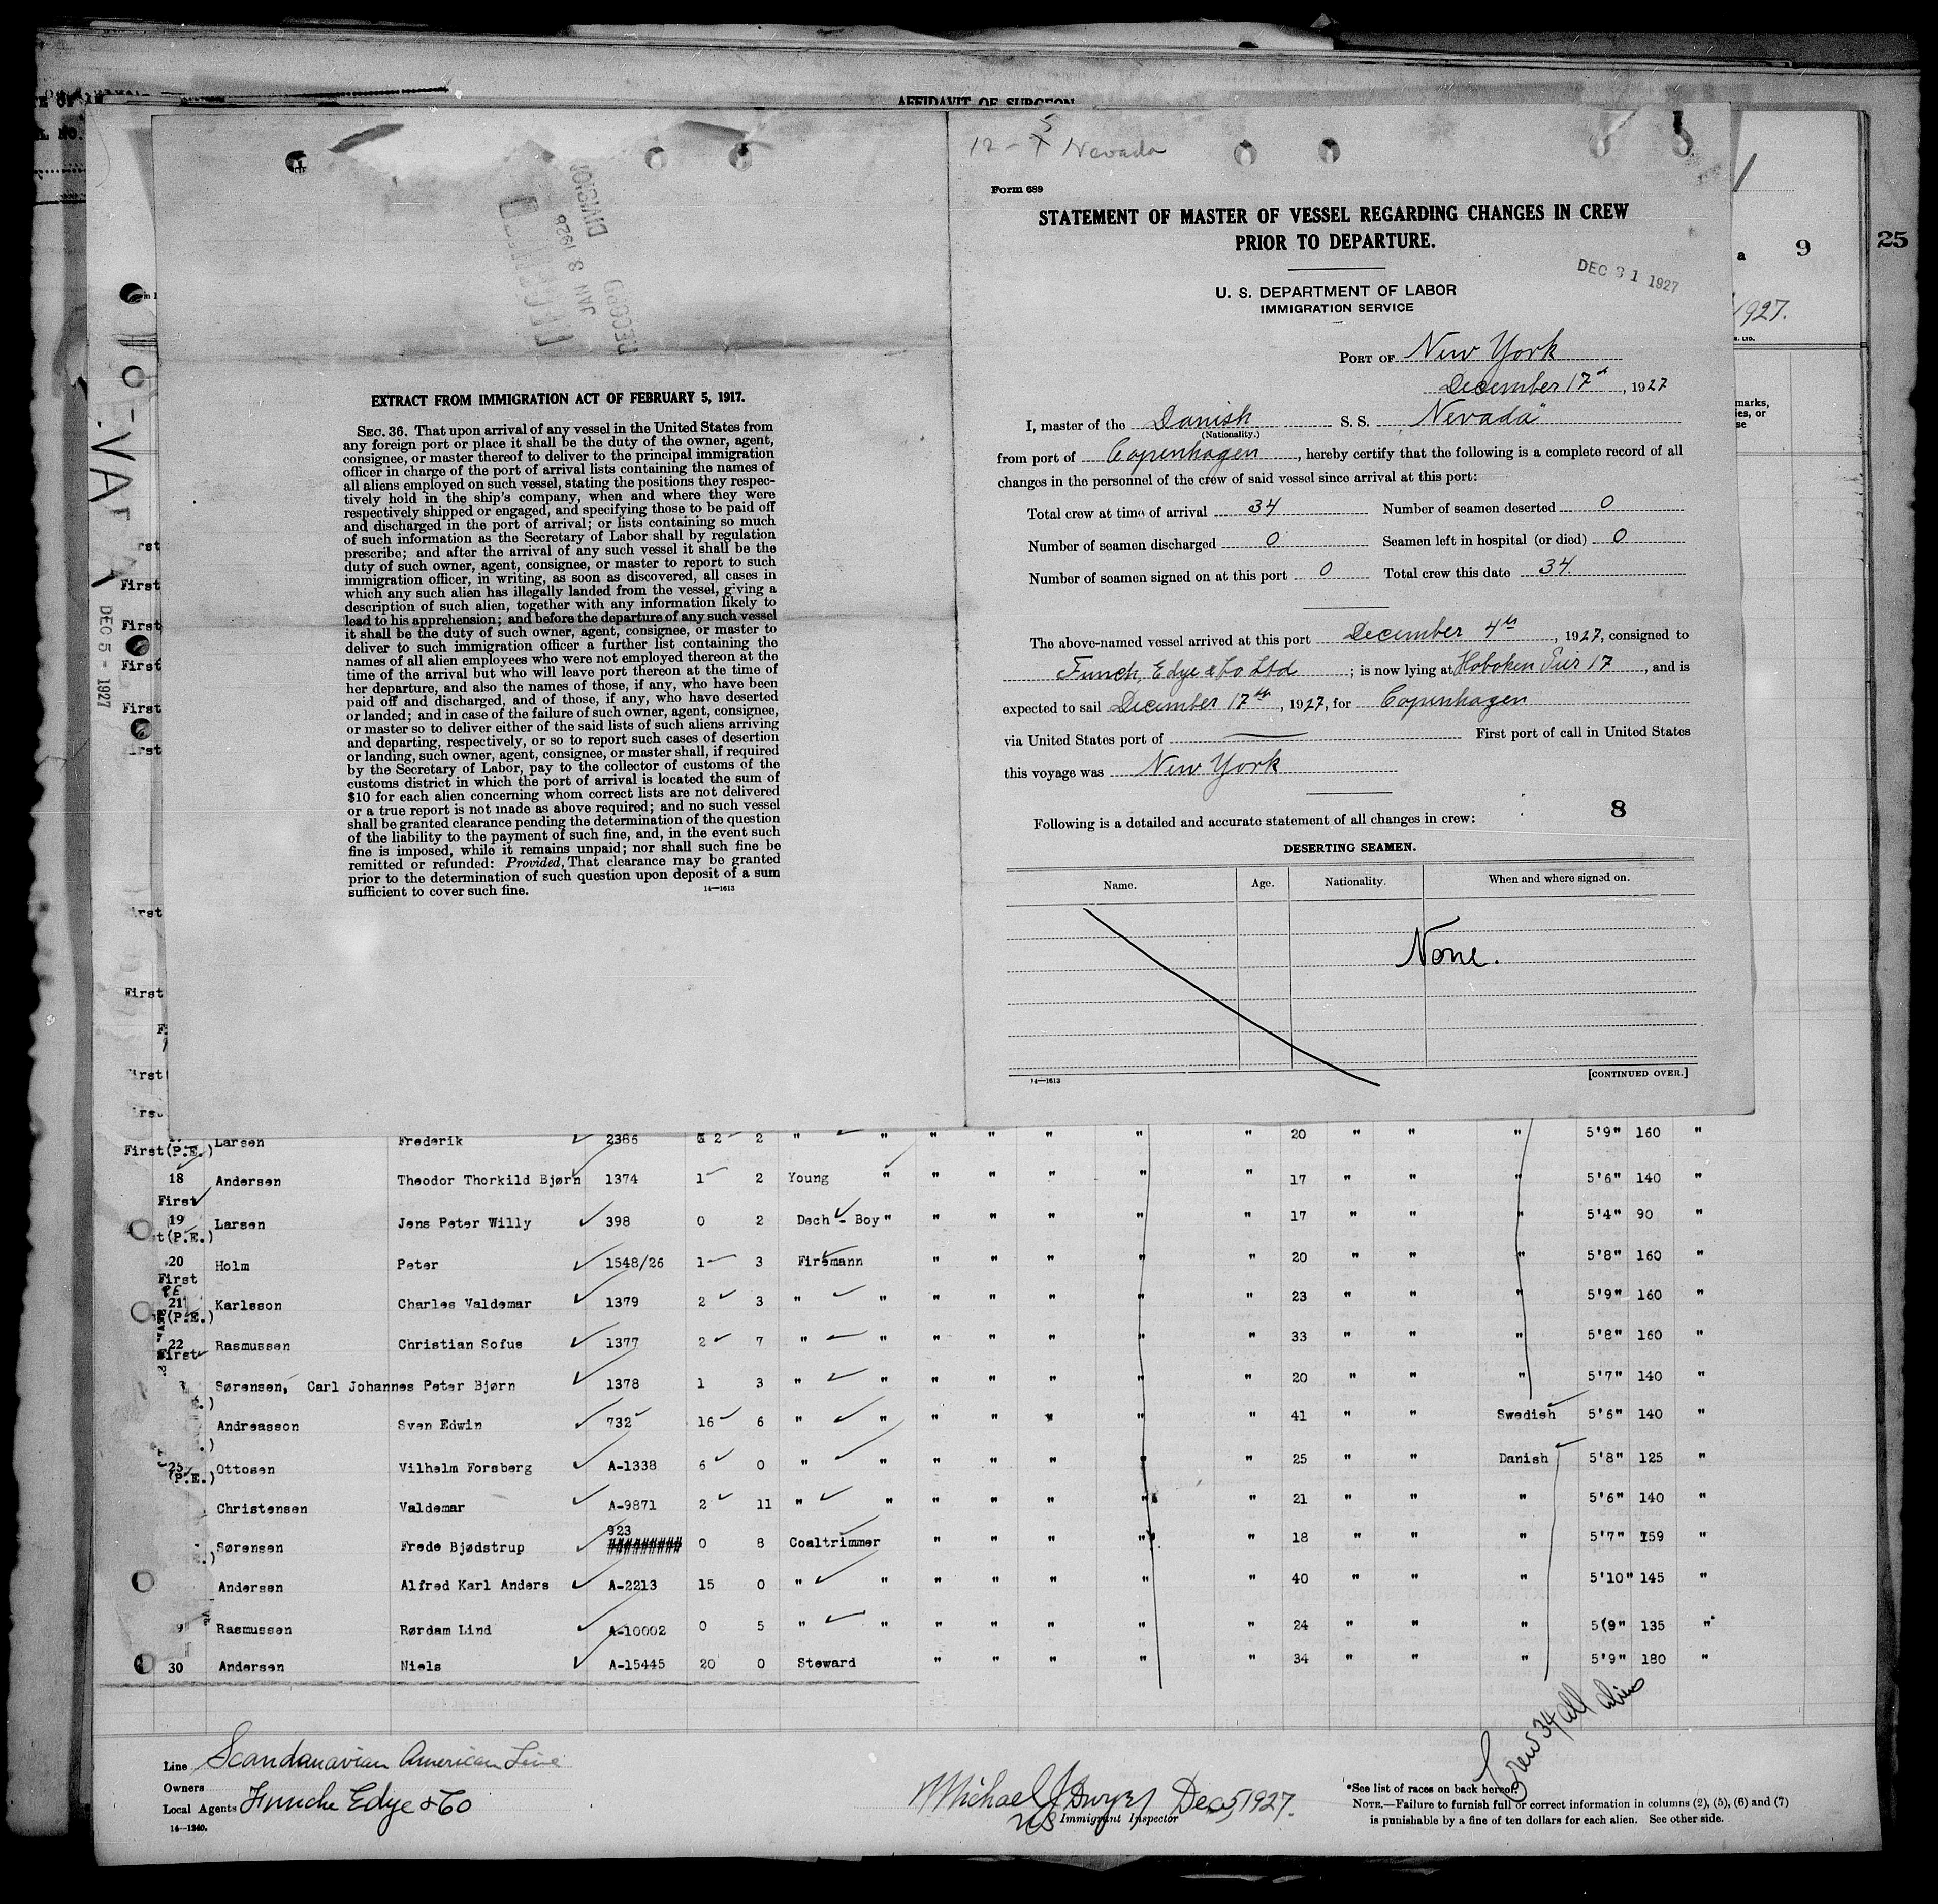 AFFIDAVIT OF SURGEON
12-5 Nevada
Form 689
STATEMENT OF MASTER OF VESSEL REGARDING CHANGES IN CREW
PRIOR TO DEPARTURE.
DEC 31 1927
U. S. DEPARTMENT OF LABOR
IMMIGRATION SERVICE
PORT OF New York
December 17th, 1927
I, master of the Danish S. S. Nevada"
(Nationality.)
from port of Copenhagen, hereby certify that the following is a complete record of all
changes in the personnel of the crew of said vessel since arrival at this port:
Total crew at time of arrival 34 Number of seamen deserted 0
Number of seamen discharged 0 Seamen left in hospital (or died) 0
Number of seamen signed on at this port 0 Total crew this date 34
The above-named vessel arrived at this port December 4th, 1927, consigned to
Funch, Edye & Co Ltd; is now lying at Hoboken Pier 17, and is
expected to sail December 17th, 1927, for Copenhagen
via United States port of — First port of call in United States
this voyage was New York
8
Following is a detailed and accurate statement of all changes in crew:
DESERTING SEAMEN.
Name. Age. Nationality. When and where signed on.
None.
14—1613 [CONTINUED OVER.]
RECORD DIVISION
JAN 3 1928
EXTRACT FROM IMMIGRATION ACT OF FEBRUARY 5, 1917.
SEC. 36. That upon arrival of any vessel in the United States from
any foreign port or place it shall be the duty of the owner, agent,
consignee, or master thereof to deliver to the principal immigration
officer in charge of the port of arrival lists containing the names of
all aliens employed on such vessel, stating the positions they respec-
tively hold in the ship's company, when and where they were
respectively shipped or engaged, and specifying those to be paid off
and discharged in the port of arrival; or lists containing so much
of such information as the Secretary of Labor shall by regulation
prescribe; and after the arrival of any such vessel it shall be the
duty of such owner, agent, consignee, or master to report to such
immigration officer, in writing, as soon as discovered, all cases in
which any such alien has illegally landed from the vessel, giving a
description of such alien, together with any information likely to
lead to his apprehension; and before the departure of any such vessel
it shall be the duty of such owner, agent, consignee, or master to
deliver to such immigration officer a further list containing the
names of all alien employees who were not employed thereon at the
time of the arrival but who will leave port thereon at the time of
her departure, and also the names of those, if any, who have been
paid off and discharged, and of those, if any, who have deserted
or landed; and in case of the failure of such owner, agent, consignee,
or master so to deliver either of the said lists of such aliens arriving
and departing, respectively, or so to report such cases of desertion
or landing, such owner, agent, consignee, or master shall, if required
by the Secretary of Labor, pay to the collector of customs of the
customs district in which the port of arrival is located the sum of
$10 for each alien concerning whom correct lists are not delivered
or a true report is not made as above required; and no such vessel
shall be granted clearance pending the determination of the question
of the liability to the payment of such fine, and, in the event such
fine is imposed, while it remains unpaid; nor shall such fine be
remitted or refunded: Provided, That clearance may be granted
prior to the determination of such question upon deposit of a sum
sufficient to cover such fine. 14—1613
9
25
1927.
DEC 5 - 1927
First
First
First
First
First
First (P.E.) Larsen Frederik 2386 2 2 " " " " " " " 20 " " " 5'9" 160 "
18 Andersen Theodor Thorkild Bjørn 1374 1 2 Young " " " " " " 17 " " " 5'6" 140 "
First
19 Larsen Jens Peter Willy 398 0 2 Dech - Boy " " " " " " 17 " " " 5'4" 90 "
(P.E.)
20 Holm Peter 1548/26 1 3 Firemann " " " " " 20 " " " 5'8" 160 "
First
21 Karlsson Charles Valdemar 1379 2 3 " " " " " " " 23 " " " 5'9" 160 "
(P.E.)
22 Rasmussen Christian Sofus 1377 2 7 " " " " " " " 33 " " " 5'8" 160 "
First
Sørensen, Carl Johannes Peter Bjørn 1378 1 3 " " " " " " " 20 " " " 5'7" 140 "
Andreasson Sven Edwin 732 16 6 " " " " " " " 41 " " Swedish 5'6" 140 "
25 Ottosen Vilhelm Forsberg A-1338 6 0 " " " " " " " 25 " " Danish 5'8" 125 "
(P.E.)
Christensen Valdemar A-9871 2 11 " " " " " " " 21 " " " 5'6" 140 "
923
Sørensen Frede Bjødstrup 0 8 Coaltrimmer " " " " " 18 " " " 5'7" 159 "
Andersen Alfred Karl Anders A-2213 15 0 " " " " " " " 40 " " " 5'10" 145 "
9 Rasmussen Rørdam Lind A-10002 0 5 " " " " " " " 24 " " " 5(9" 135 "
30 Andersen Niels A-15445 20 0 Steward " " " " " 34 " " " 5'9" 180 "
Crew 34 all aliens
Line Scandanavian American Line
Owners
Local Agents Funche Edye & Co
14—1240.
Michael J Dwyer Dec 5 1927.
US Immigrant Inspector
*See list of races on back hereof.
NOTE.—Failure to furnish full or correct information in columns (2), (5), (6) and (7)
is punishable by a fine of ten dollars for each alien. See other side.